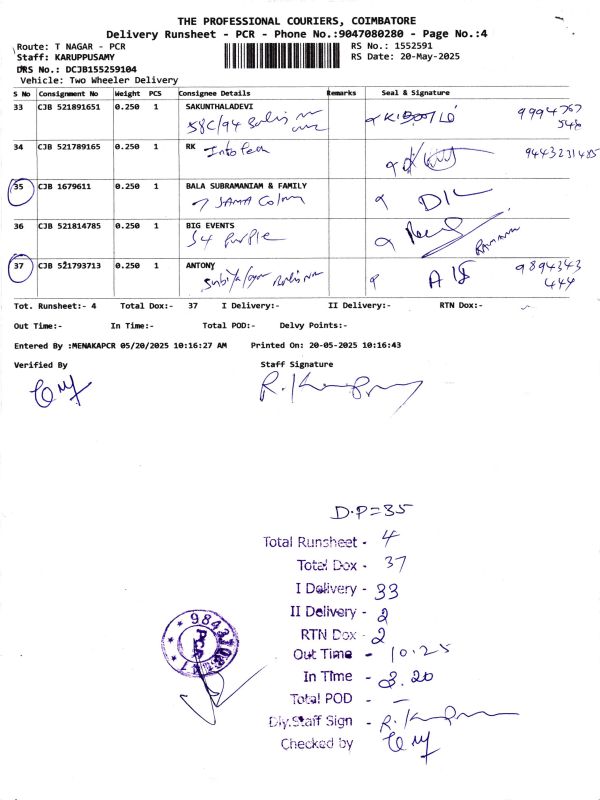 THE PROFESSIONAL COURIERS, COIMBATORE
Delivery Runsheet - PCR - Phone No.:9047080280 - Page No.:4
Route: T NAGAR - PCR
RS No.: 1552591
Staff: KARUPPUSAMY
RS Date: 20-May-2025
DRS No.: DCJB155259104
Vehicle: Two Wheeler Delivery
S No Consignment No Weight PCS Consignee Details Remarks Seal & Signature
33 CJB 521891651 0.250 1 SAKUNTHALADEVI
58C/94
9994767
548
34 CJB 521789165 0.250 1 RK Infotech
9443231485
35 CJB 1679611 0.250 1 BALA SUBRAMANIAM & FAMILY
7 SAMA Colony
36 CJB 521814785 0.250 1 BIG EVENTS
54 Purple
37 CJB 521793713 0.250 1 ANTONY
9894343
444
Tot. Runsheet:- 4 Total Dox:- 37 I Delivery:- II Delivery:- RTN Dox:-
Out Time:- In Time:- Total POD:- Delvy Points:-
Entered By :MENAKAPCR 05/20/2025 10:16:27 AM Printed On: 20-05-2025 10:16:43
Verified By Staff Signature
D.P=35
Total Runsheet - 4
Total Dox - 37
I Delivery - 33
II Delivery - 2
RTN Dox - 2
Out Time - 10.25
In Time - 3.20
Total POD - —
Dly.Staff Sign -
Checked by
PCR